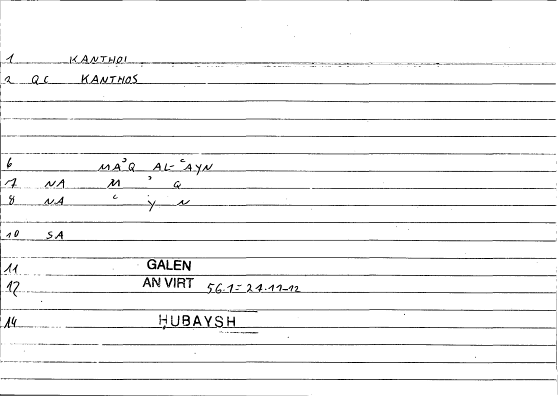 1 KANTHOI
2 QC KANTHOS
6 MAʾQ AL-ʿAYN
7 NA M ʾ Q
8 NA ʿ Y N
10 SA
11 GALEN
12 AN VIRT 56.1 = 21.11-12
14 ḤUBAYSH